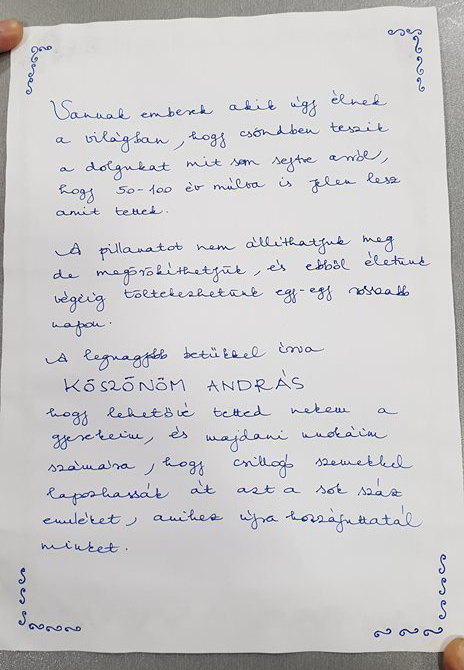 Vannak emberek akik úgy élnek
a világban, hogy csöndben teszik
a dolgukat mit sem sejtve arról,
hogy 50-100 év múlva is jelen lesz
amit tettek.
A pillanatot nem állíthatjuk meg
de megörökíthetjük, és ebből életünk
végéig töltekezhetünk egy-egy rosszabb
napon.
A legnagyobb betűkkel írva
KÖSZÖNÖM ANDRÁS
hogy lehetővé tetted nekem a
gyerekeim, és majdani unokáim
számára, hogy csillogó szemekkel
lapozhassák át azt a sok száz
emléket, amihez újra hozzájuttatál
minket.